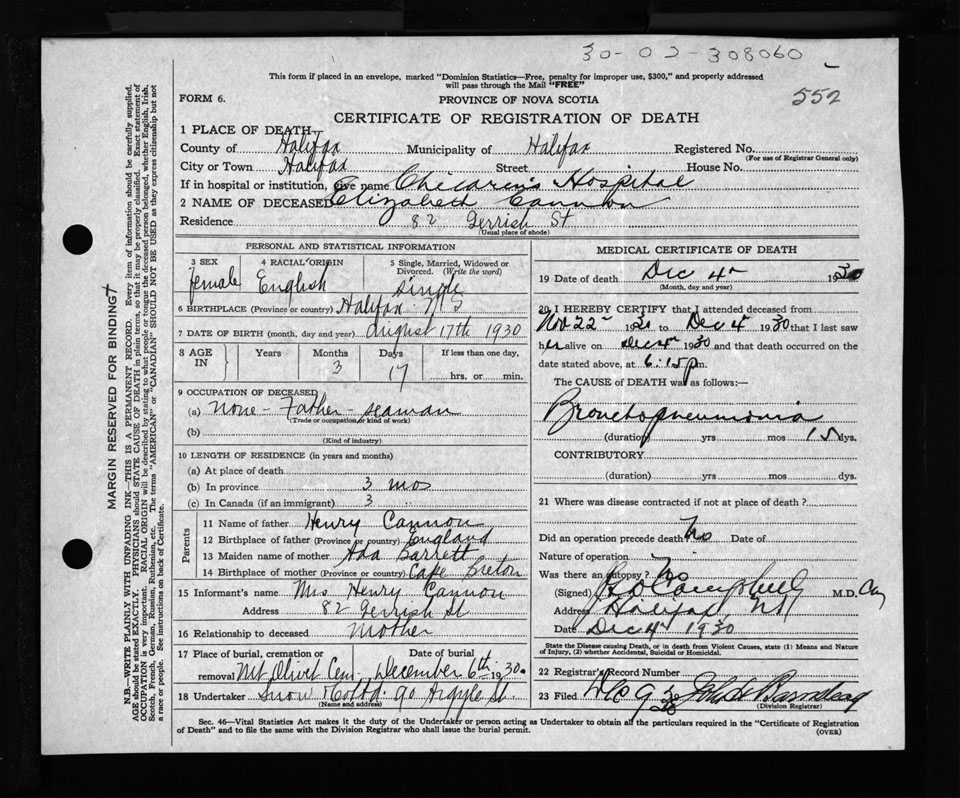 30-02-308060
This form if placed in an envelope, marked "Dominion Statistics—Free, penalty for improper use, $300," and properly addressed
will pass through the Mail "FREE"
552
FORM 6.
PROVINCE OF NOVA SCOTIA
CERTIFICATE OF REGISTRATION OF DEATH
1 PLACE OF DEATH
County of Halifax Municipality of Halifax Registered No.
(For use of Registrar General only)
City or Town Halifax Street House No.
If in hospital or institution, give name Hospital
2 NAME OF DECEASED Elizabeth Cannon
Residence 82 Gerrish St
(Usual place of abode)
PERSONAL AND STATISTICAL INFORMATION
3 SEX 4 RACIAL ORIGIN 5 Single, Married, Widowed or
Divorced. (Write the word)
female English single
6 BIRTHPLACE (Province or country) Halifax N S
7 DATE OF BIRTH (month, day and year) August 17th 1930
8 AGE IN Years Months Days If less than one day,
3 17 hrs. or min.
9 OCCUPATION OF DECEASED
(a) None - Father - seaman
(Trade or occupation or kind of work)
(b)
(Kind of industry)
10 LENGTH OF RESIDENCE (in years and months)
(a) At place of death
(b) In province 3 mos
(c) In Canada (if an immigrant) 3
Parents
11 Name of father Henry Cannon
12 Birthplace of father (Province or country) England
13 Maiden name of mother Ada Barrett
14 Birthplace of mother (Province or country) Cape Breton
15 Informant's name Mrs Henry Cannon
Address 82 Gerrish St
16 Relationship to deceased Mother
17 Place of burial, cremation or removal Date of burial
Mt Olivet Cem, December 6th 1930
18 Undertaker Snow & Co Ltd. 90 Argyle St.
(Name and address)
MEDICAL CERTIFICATE OF DEATH
19 Date of death Dec 4 1930
(Month, day and year)
20 I HEREBY CERTIFY that I attended deceased from
Nov 22 1930 to Dec 4 1930 that I last saw
her alive on Dec 4 1930 and that death occurred on the
date stated above, at 6.15 p m.
The CAUSE OF DEATH was as follows:—
Bronchopneumonia
(duration) yrs mos 15 dys.
CONTRIBUTORY
(duration) yrs mos dys.
21 Where was disease contracted if not at place of death?
Did an operation precede death No Date of
Nature of operation
Was there an autopsy? No
(Signed) Campbell M.D.
Address Halifax NS
Date Dec 4 1930
State the Disease causing Death, or in death from Violent Causes, state (1) Means and Nature
of Injury, (2) whether Accidental, Suicidal or Homicidal.
22 Registrar's Record Number
23 Filed Dec 9 30
(Division Registrar)
Sec. 46—Vital Statistics Act makes it the duty of the Undertaker or person acting as Undertaker to obtain all the particulars required in the "Certificate of Registration
of Death" and to file the same with the Division Registrar who shall issue the burial permit.
(OVER)
MARGIN RESERVED FOR BINDING
N.B.—WRITE PLAINLY WITH UNFADING INK—THIS IS A PERMANENT RECORD. Every item of information should be carefully supplied.
AGE should be stated EXACTLY. PHYSICIANS should STATE CAUSE OF DEATH in plain terms, so that it may be properly classified. Exact statement of
OCCUPATION is very important. RACIAL ORIGIN will be described by stating to what people or tongue the deceased person belonged, whether English, Irish,
Scotch, French, German, Russian, Ruthenian, etc. The terms "AMERICAN" or "CANADIAN" SHOULD NOT BE USED as they express citizenship but not
a race or people. See instructions on back of Certificate.